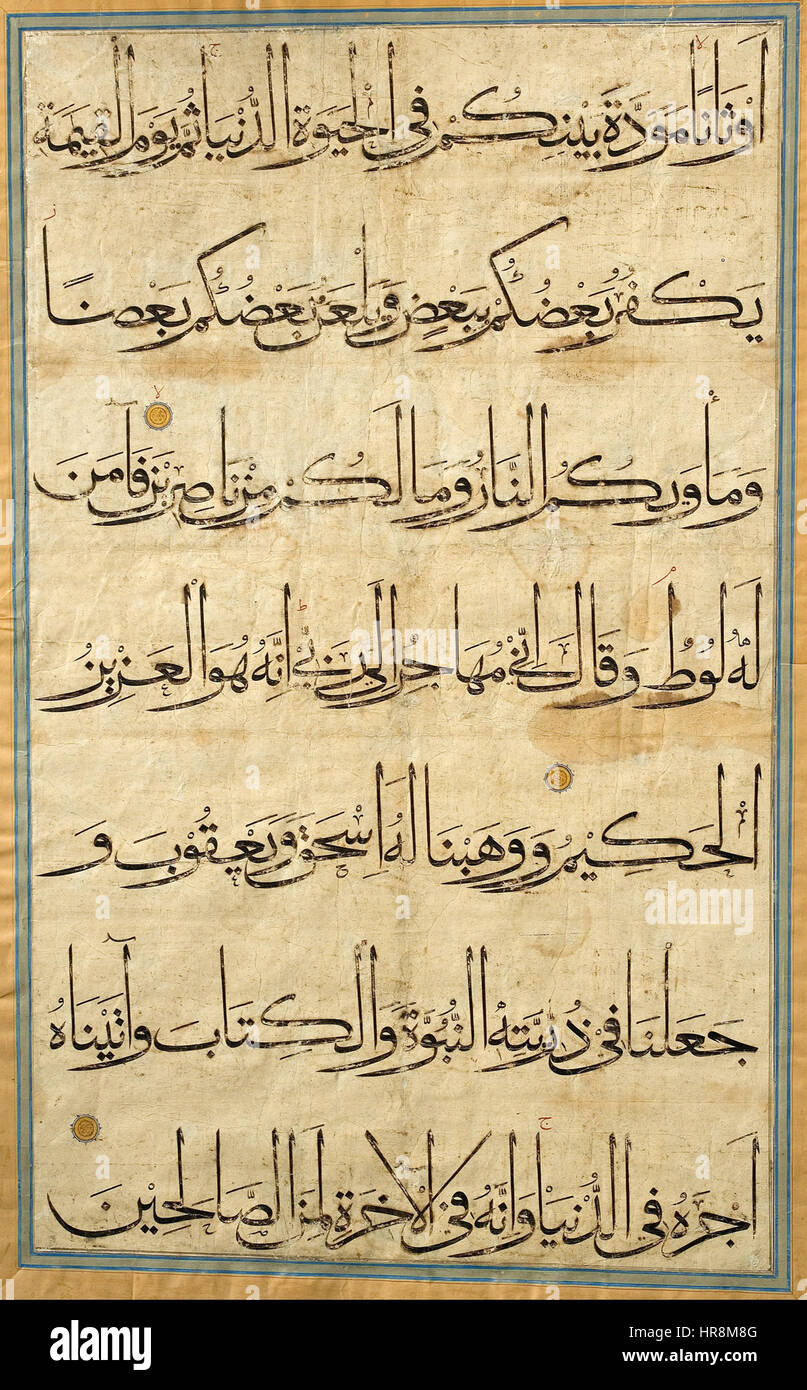 اَوْثَانًا مَوَدَّةَ بَيْنِكُمْ فِى الْحَيٰوةِ الدُّنْيَا ثُمَّ يَوْمَ الْقِيٰمَةِ
يَكْفُرُ بَعْضُكُمْ بِبَعْضٍ وَيَلْعَنُ بَعْضُكُمْ بَعْضًا
وَمَأْوٰىكُمُ النَّارُ وَمَا لَكُمْ مِنْ نَاصِرِينَ فَآمَنَ
لَهُ لُوطٌ وَقَالَ اِنِّى مُهَاجِرٌ اِلٰى رَبِّى اِنَّهُ هُوَ الْعَزِيزُ
الْحَكِيمُ وَوَهَبْنَا لَهُ اِسْحٰقَ وَيَعْقُوبَ وَ
جَعَلْنَا فِى ذُرِّيَّتِهِ النُّبُوَّةَ وَالْكِتَابَ وَآتَيْنَاهُ
اَجْرَهُ فِى الدُّنْيَا وَاِنَّهُ فِى الْاٰخِرَةِ لَمِنَ الصَّالِحِينَ
alamy stock photo
HR8M8G
www.alamy.com